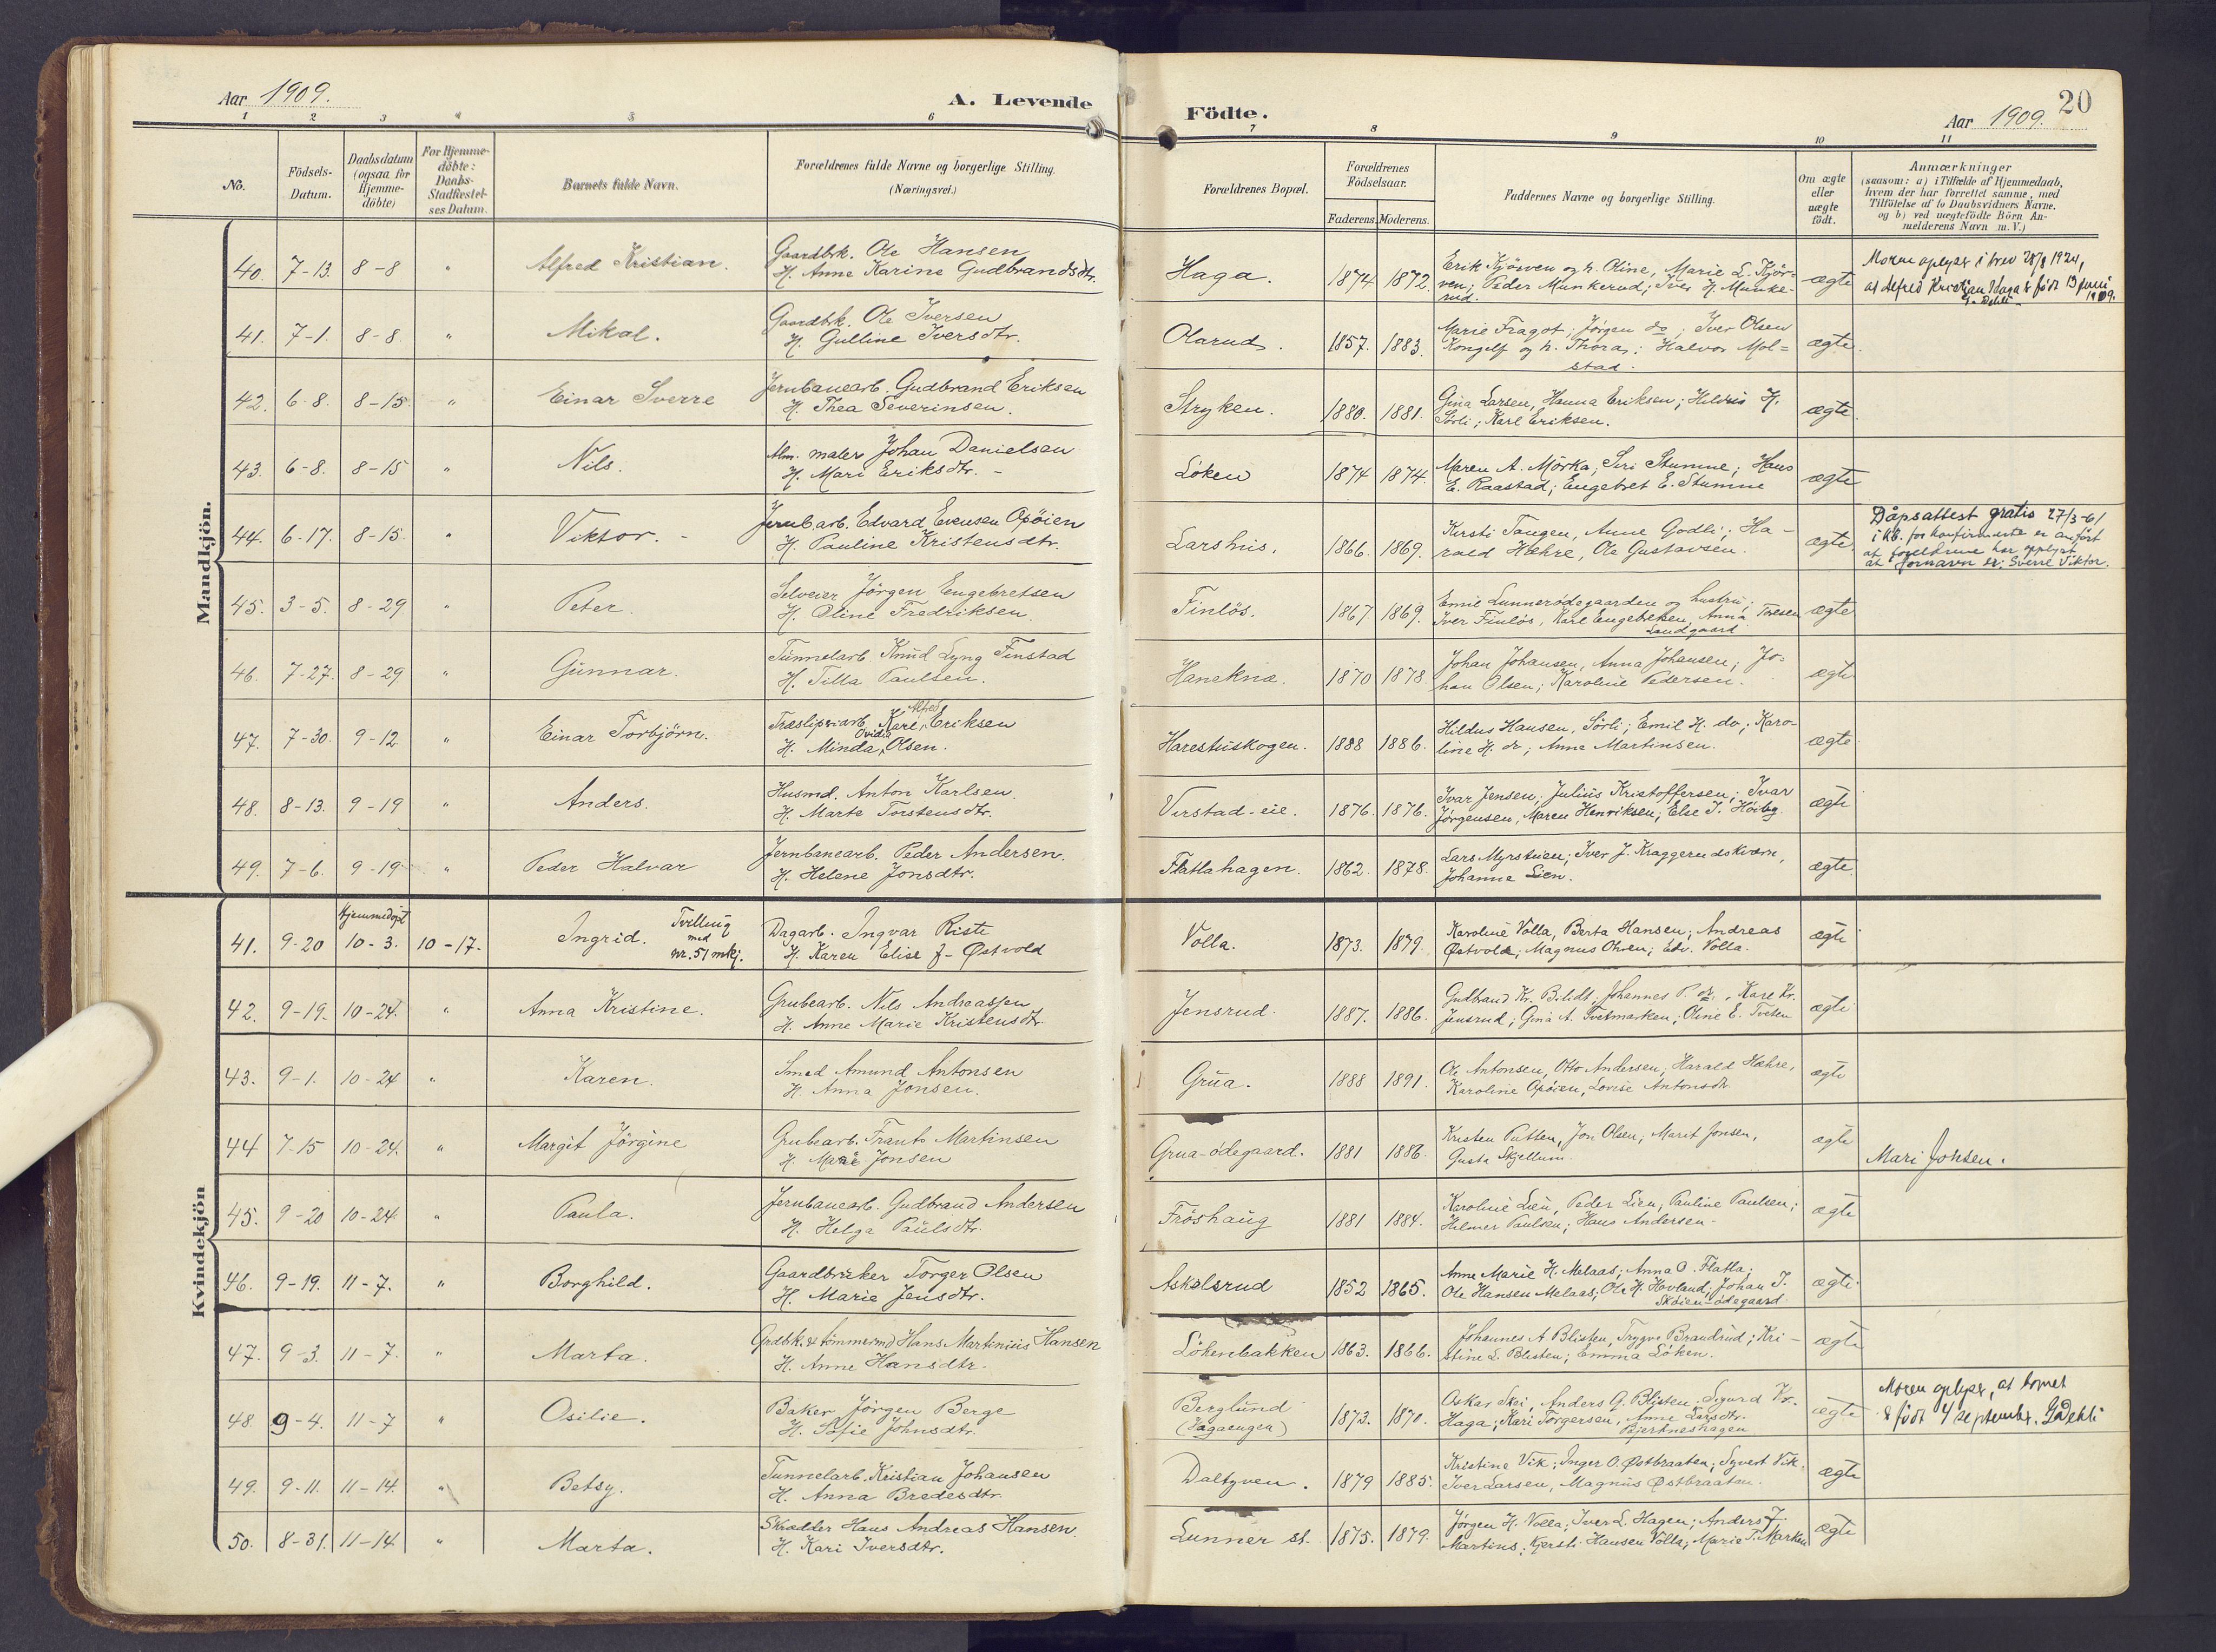 Aar 1909. A. Levende Födte. Aar 1909. 20
1 2 3 4 5 6 7 8 9 10 11
No. Födsels-Datum. Daabsdatum (ogsaa for Hjemme-döbte) For Hjemme-döbte: Daabs-Stadfæstel-ses Datum. Barnets fulde Navn. Forældrenes fulde Navne og borgerlige Stilling. (Næringsvei.) Forældrenes Bopæl. Forældrenes Födselsaar. Faderens. Moderens. Faddernes Navne og borgerlige Stilling. Om ægte eller uægte födt. Anmærkninger
(saasom: a) i Tilfælde af Hjemmedaab,
hvem der har forrettet samme, med
Tilföielse af to Daabsvidners Navne.
og b) ved uægtefödte Börn An-
melderens Navn m. V.)
Mandkjön.
40. 7-13. 8-8 " Alfred Kristian. Gaardbrk. Ole Hansen
H. Anne Karine Gudbrandsdtr. Haga. 1874 1872. Erik Kjörven og h. Oline, Marie L. Kjör-
ven; Peder Munkerud; Iver H. Munke-
rud. ægte Moren oplyser i brev 28/8 1924,
at Alfred Kristian Haga er født 13 juni
1909.
41. 7-1. 8-8. " Mikal. Gaardbrk. Ole Iversen
H. Gulline Iversdtr. Olarud. 1857. 1883. Marie Fragot; Jörgen do; Iver Olsen
Kongelf og h. Thora; Halvor Mol=
stad. ægte.
42. 6-8. 8-15 " Einar Sverre Jernbanearb. Gudbrand Eriksen
H. Thea Severinsen. Stryken. 1880. 1881. Gina Larsen, Hanna Eriksen; H.
Sörli; Karl Eriksen. ægte.
43. 6-8. 8-15 " Nils. Alm. maler Johan Danielsen
H. Mari Eriksdtr. - Löken 1874 1874. Maren A. Mörka; Siri Stumne; Hans
E. Raastad; Engebret E. Stumne ægte
44. 6-17. 8-15. " Viktor. - Jernb.arb. Edvard Evensen Opöien
H. Pauline Kristensdtr. Larshus. 1866. 1869. Kirsti Tangen, Anne Godli; Ha-
rald Hæhre, Ole Gustavsen. ægte. Dåpsattest gratis 27/3-61
i kb. for konfirmerte er anført
at foreldrene har opplyst
at fornavn er: Sverre Viktor.
45. 3-5. 8-29 " Peter. Selveier Jörgen Engebretsen
H. Oline Fredriksen. Finlös. 1867. 1869. Emil Lunnerödegaarden og hustru;
Iver Finlös, Karl Engebretsen, Anna Toresen
Sandgaard ægte
46. 7-27. 8-29 " Gunnar. Tunnelarb Knud Lyng Finstad
H. Tilla Paulsen. Hanekna. 1870 1878. Johan Johansen, Anna Johansen; Jo=
han Olsen; Karoline Pedersen. ægte
47. 7-30. 9-12. " Einar Torbjörn. Træsliperiarb. Karl Alfred Eriksen
H. Minda Ovidia Olsen. Harestuskogen. 1888 1886. Hildus Hansen, Sörli; Emil H. do; Karo-
line H. do; Anne Martinsen. ægte
48. 8-13. 9-19 " Anders. Husmd. Anton Karlsen.
H. Marte Torstensdtr. Virstad-eie. 1876. 1876. Ivar Jensen; Julius Kristoffersen; Ivar
Jörgensen, Maren Henriksen; Else T. ægte
49. 7-6. 9-19 " Peder Halvar Jernbanearb. Peder Andersen.
H. Helene Jonsdtr. Flatlahagen. 1862. 1878. Lars Myrstuen; Iver J. Kraggerudskværn,
Johanne Lien. ægte
Kvindekjön
41. 9-20 Hjemmedöpt 10-3. 10-17. Ingrid. Tvilling
med
nr. 51 mkj. Dagarb. Ingvar Riste
H. Karen Elise f- Østvold Volla. 1873. 1879. Karoline Volla, Berta Hansen; Andreas
Østvold; Magnus Olsen; Edv. Volla. ægte
42. 9-19. 10-24. " Anna Kristine. Grubearb. Nils Andreassen
H. Anne Marie Kristensdtr. Jensrud. 1887. 1886. Gudbrand Kr. Bilidt, Johannes P. do., Kare Kr.
Jensrud; Gina A. Tveitmarken; Oline E. Tveten ægte
43. 9-1. 10-24 " Karen. Smed Amund Antonsen
H. Anna Jonsen. Grua. 1888 1891. Ole Antonsen, Otto Andersen; Harald Hæhre,
Karoline Opöien, Lovise Antonsdtr. ægte
44 7-15 10-24. " Margit Jörgine Grubearb. Frants Martinsen
H. Mari Jonsen Grua-ödegaard. 1881 1886. Kristen Putten, Jon Olsen; Marit Jonsen,
Gusta Skjellum. ægte Mari Jonsen.
45. 9-20 10-24. " Paula. Jernbanearb. Gudbrand Andersen
H. Helga Paulsdtr. Fröshaug 1881 1884. Karoline Lien, Peder Lien, Pauline Paulsen;
Helmer Paulsen; Hans Andersen. ægte
46. 9-19. 11-7. " Borghild. Gaardbruker Torger Olsen
H. Marie Jensdtr. Askilsrud 1852 1865. Anne Marie H. Melaas; Anna O. Flatla;
Ole Hansen Melaas; Ole H. Hovland; Johan T.
Sköien-ödegaard. ægte
47. 9-3. 11-7. " Marta. Grdbk. & tömmermd Hans Martinius Hansen
H. Anne Hansdtr. Lökenbakken 1863. 1866. Johannes A Blisten, Trygve Brandrud; Kri-
stine L. Blisten; Emma Löken. ægte
48. 9-4. 11-7 " Osilie. Baker Jörgen Berge
H. Sofie Johnsdtr. Berglund
(Hagaengen) 1873. 1870. Oskar Skei, Anders G. Blisten, Sigurd Kr.
Haga; Kari Torgersen, Anne Larsdtr.
Bjertneshagen ægte Moren oplyser, at barnet
er født 4 september. G Dehli
49. 9-11. 11-14. " Betsy. Tunnelarb. Kristian Johansen
H. Anna Bredesdtr. Daltyven. 1879 1885. Kristine Vik; Inger O. Østbraaten; Syvert Vik.
Iver Larsen, Magnus Østbraaten. ægte
50. 8-31. 11-14. " Marta. Skrædder Hans Andreas Hansen.
H. Kari Iversdtr. Lunner st. 1875. 1879. Jörgen H. Volla; Iver L. Hagen; Anders J.
Martins; Kjersti Hansen Volla; Marie T. Marken ægte